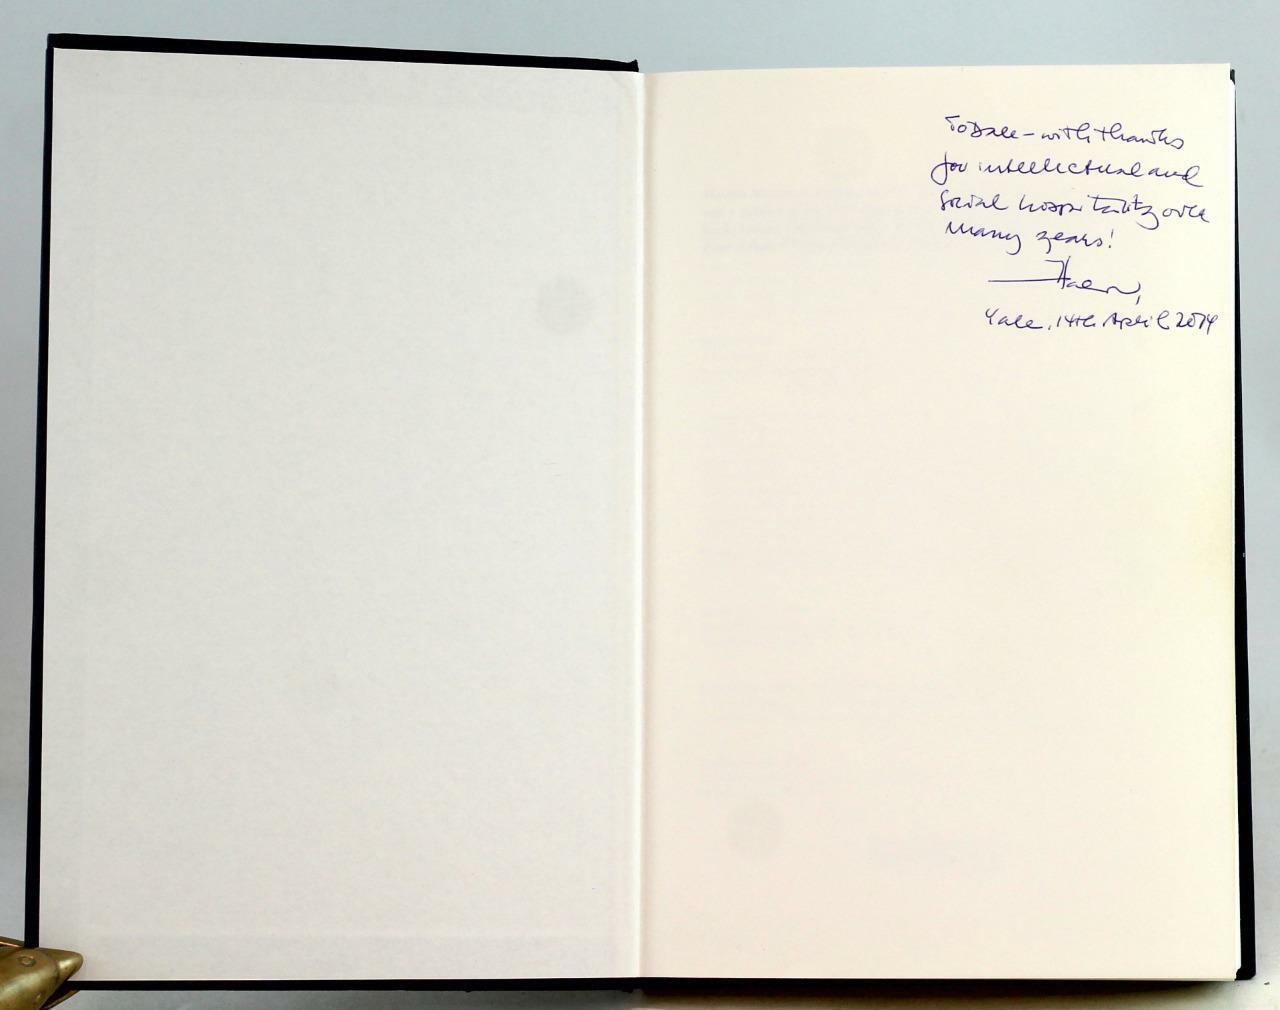 To Dale – with thanks
for intellectual and
social hospitality over
many years!
Yale, 14th April 2014